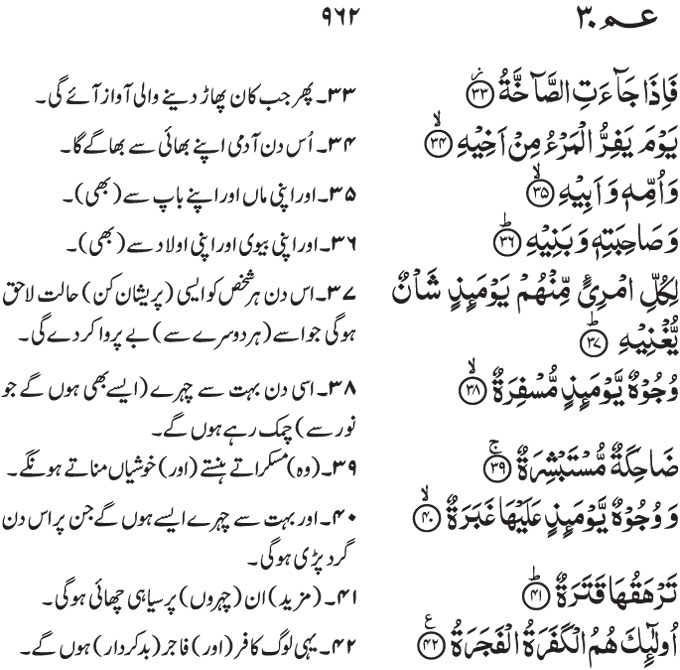 عـمـ ۳۰
۹۶۲
فَاِذَا جَآءَتِ الصَّآخَّةُ ﴿۳۳﴾
۳۳۔ پھر جب کان پھاڑ دینے والی آواز آئے گی۔
يَوْمَ يَفِرُّ الْمَرْءُ مِنْ اَخِيْهِ ﴿۳۴﴾
۳۴۔ اُس دن آدمی اپنے بھائی سے بھاگے گا۔
وَاُمِّهٖ وَاَبِيْهِ ﴿۳۵﴾
۳۵۔ اور اپنی ماں اور اپنے باپ سے (بھی)۔
وَصَاحِبَتِهٖ وَبَنِيْهِ ﴿۳۶﴾
۳۶۔ اور اپنی بیوی اور اپنی اولاد سے (بھی)۔
لِكُلِّ امْرِئٍ مِّنْهُمْ يَوْمَئِذٍ شَاْنٌ
يُّغْنِيْهِ ﴿۳۷﴾
۳۷۔ اس دن ہر شخص کو ایسی (پریشان کن) حالت لاحق
ہوگی جو اسے (ہر دوسرے سے) بے پروا کر دے گی۔
وُجُوْهٌ يَّوْمَئِذٍ مُّسْفِرَةٌ ﴿۳۸﴾
۳۸۔ اسی دن بہت سے چہرے (ایسے بھی ہوں گے جو
نور سے) چمک رہے ہوں گے۔
ضَاحِكَةٌ مُّسْتَبْشِرَةٌ ﴿۳۹﴾
۳۹۔ (وہ) مسکراتے ہنستے (اور) خوشیاں مناتے ہونگے۔
وَوُجُوْهٌ يَّوْمَئِذٍ عَلَيْهَا غَبَرَةٌ ﴿۴۰﴾
۴۰۔ اور بہت سے چہرے ایسے ہوں گے جن پر اس دن
گرد پڑی ہوگی۔
تَرْهَقُهَا قَتَرَةٌ ﴿۴۱﴾
۴۱۔ (مزید) ان (چہروں) پر سیاہی چھائی ہوگی۔
اُولٰٓئِكَ هُمُ الْكَفَرَةُ الْفَجَرَةُ ﴿۴۲﴾
۴۲۔ یہی لوگ کافر (اور) فاجر (بدکردار) ہوں گے۔